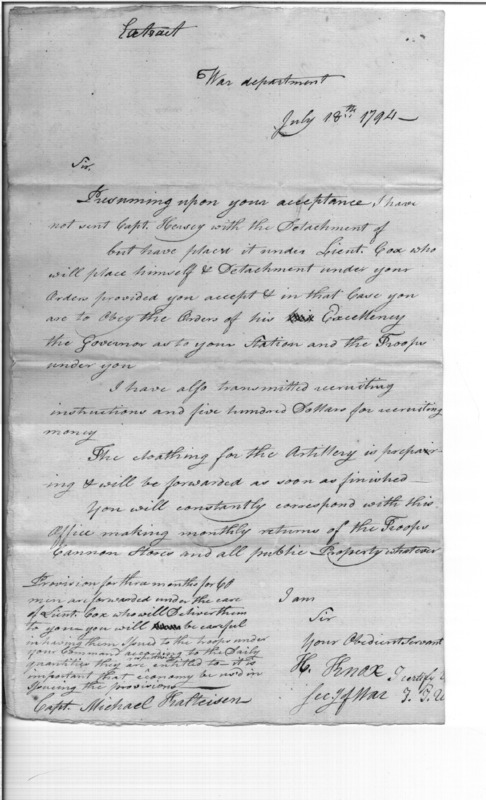 Extract
War department
July 18th 1794
Sir.
Presuming upon your acceptance, I have
not sent Capt. Hersey with the Detachment of
but have placed it under Lieut. Cox who
will place himself & Detachment under your
Orders provided you accept & in that Case you
are to Obey the Orders of his Excellency
the Governor as to your Station and the Troops
under you
I have also transmitted recruiting
instructions and five hundred Dollars for recruiting
money
The cloathing for the Artillery is prepair-
ing & will be forwarded as soon as finished
You will constantly correspond with this
Office making monthly returns of the Troops
Cannon Stores and all public Property whatever
Provision for three months for 60
men are forwarded under the care
of Lieut. Cox who will Deliver them
to you. you will be careful
in having them Issued to the troops under
your Command according to the Daily
quantities they are entitled to it is
important that economy be used in
Issueing the provisions
Capt. Michael Kalteisen
I am
Sir
Your Obedient Servant
H. Knox
Secy of War
I certify